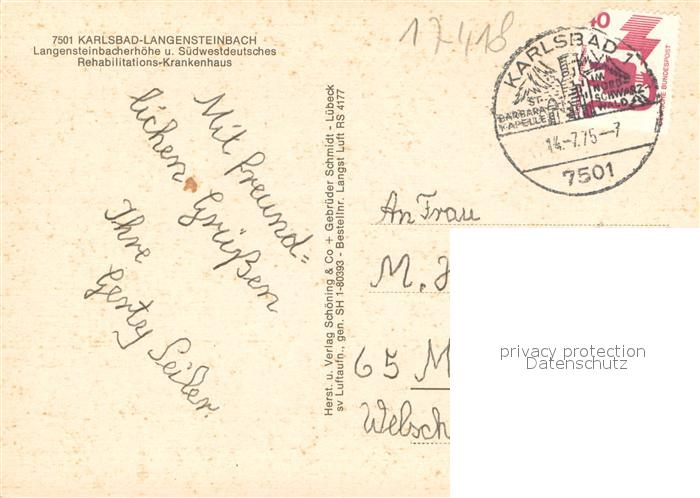 7501 KARLSBAD-LANGENSTEINBACH
Langensteinbacherhöhe u. Südwestdeutsches
Rehabilitations-Krankenhaus
17418
40
DEUTSCHE BUNDESPOST
KARLSBAD 1
IM
NORD-
SCHWARZ-
WALD
ST.
BARBARA
KAPELLE
14.-7.75-7
7501
Mit freund=
lichen Grüßen
Ihre
Gerty Seiler.
Herst. u. Verlag Schöning & Co + Gebrüder Schmidt - Lübeck
sv Luftaufn., gen. SH 1-80393 - Bestellnr. Langst Luft RS 4177
An Frau
M.
65 M
Welsch
privacy protection
Datenschutz